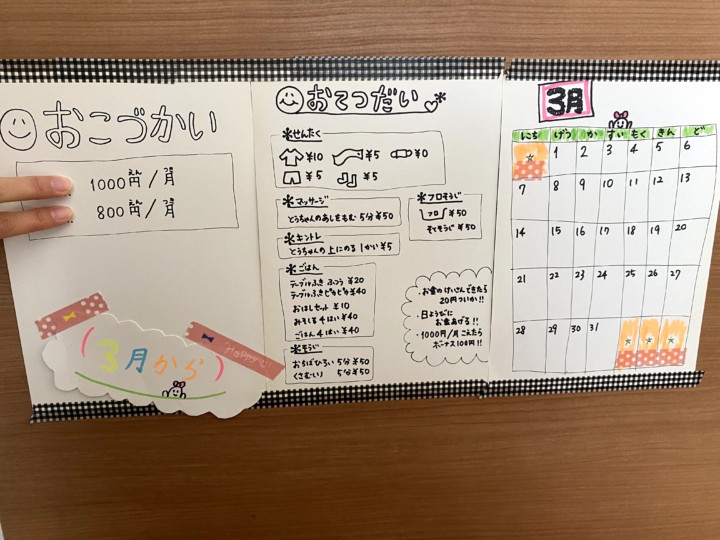 おこづかい
1000円/月
800円/月
(3月から)
HAPPY
おてつだい
＊せんたく
¥10 ¥5 ¥0
¥5 ¥5
＊マッサージ
とうちゃんのあしをもむ 5分¥50
＊キントレ
とうちゃんの上にのる 1かい¥5
＊ごはん
テーブルふき ふつう ¥20
テーブルふき ぴかぴか ¥40
おはしセット ¥10
みそしる4はい ¥40
ごはん4はい ¥40
＊そうじ
おちばひろい 5分¥50
くさむしり 5分¥50
＊フロそうじ
フロ ¥50
¥50
・お金のけいさんできたら
20円ついか!!
・日ようびに
お金あげる!!
・1000円/月こえたら
ボーナス100円!!
3月
にち げつ か すい もく きん ど
1 2 3 4 5 6
7 8 9 10 11 12 13
14 15 16 17 18 19 20
21 22 23 24 25 26 27
28 29 30 31